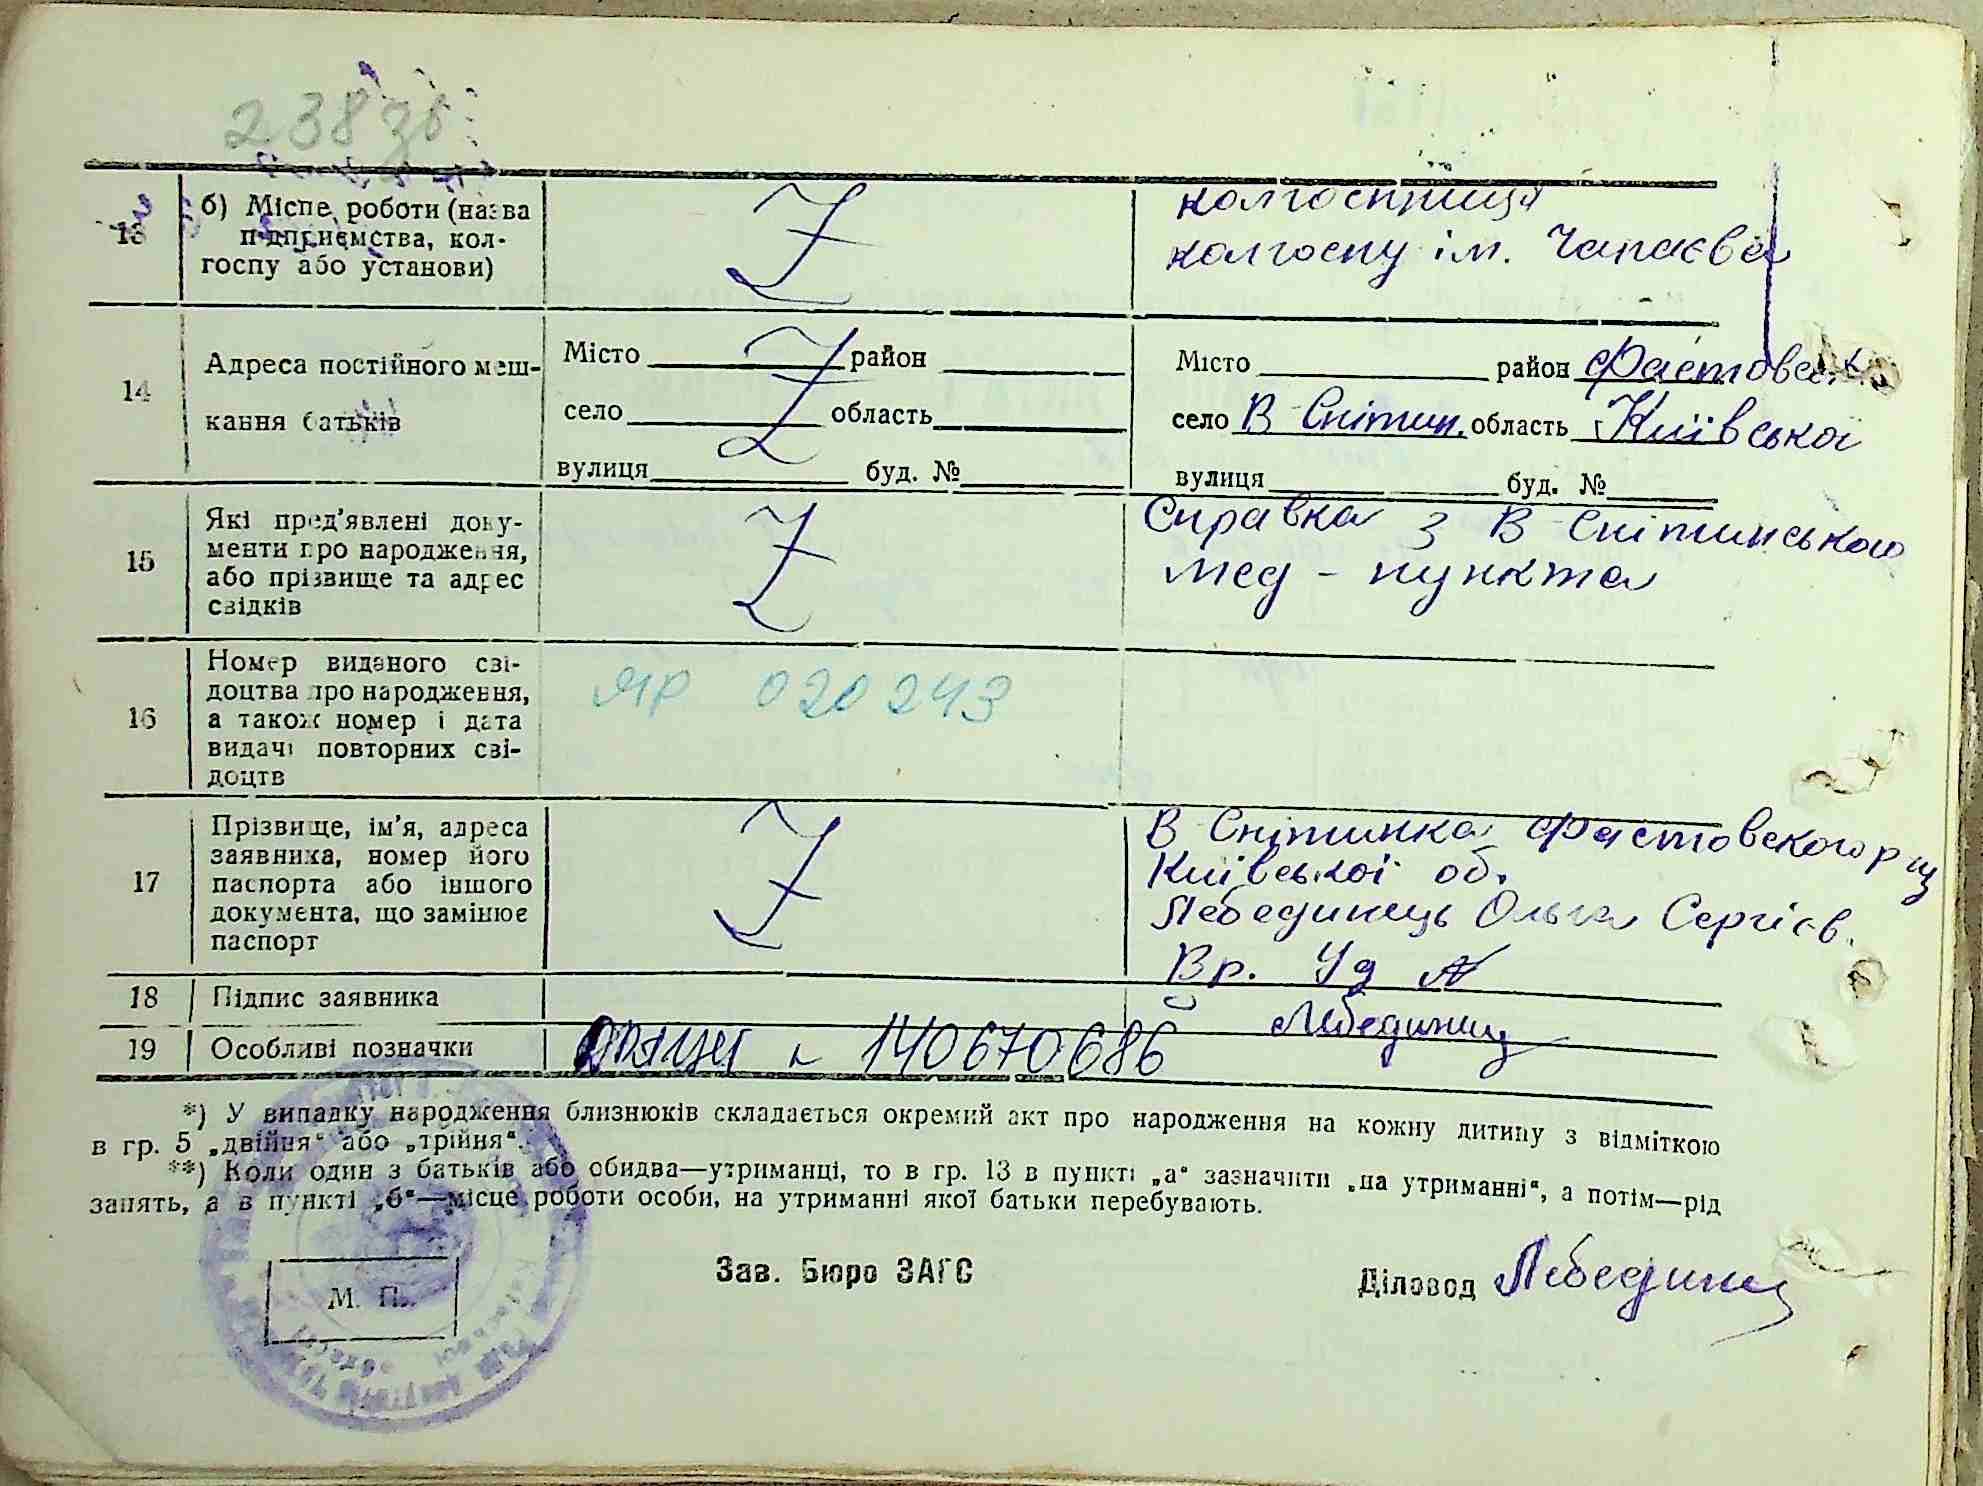 238 зв
13
б) Місце роботи (назва
підприємства, кол-
госпу або установи)
колгоспниця
колгоспу ім. Чапаєва
14
Адреса постійного меш-
кання батьків
Місто район
село область
вулиця буд. №
Місто район Фастовськ.
село В Снітин. область Київської
вулиця буд. №
15
Які пред'явлені доку-
менти про народження,
або прізвище та адрес
свідків
Справка з В Снітинського
мед - пункта
16
Номер виданого сві-
доцтва про народження,
а також номер і дата
видачі повторних сві-
доцтв
ЯР 020243
17
Прізвище, ім'я, адреса
заявника, номер його
паспорта або іншого
документа, що замінює
паспорт
В Снітинка Фастовского р-ну
Київської об.
Лебединець Ольга Сергієв.
Вр. Уд №
18
Підпис заявника
Лебединец
19
Особливі позначки
140670686
*) У випадку народження близнюків складається окремий акт про народження на кожну дитину з відміткою
в гр. 5 „двійня“ або „трійня“.
**) Коли один з батьків або обидва—утриманці, то в гр. 13 в пункті „а“ зазначити „на утриманні“, а потім—рід
занять, а в пункті „б“—місце роботи особи, на утриманні якої батьки перебувають.
М. П.
Зав. Бюро ЗАГС
Діловод Лебединец